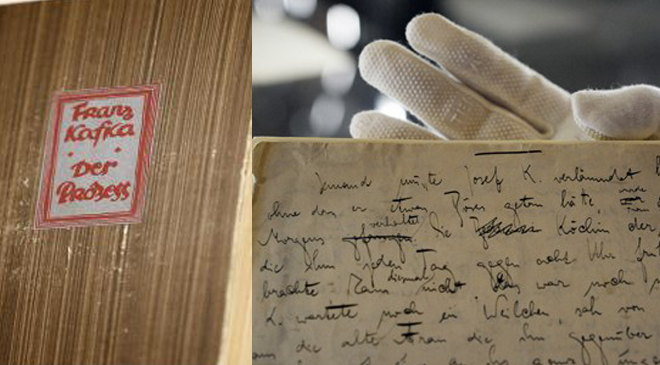 Franz
Kafka
Der
Prozess
Jemand musste Josef K. verläumdet
ohne dass er etwas Böses getan hätte, wurde
verhaftet
Morgens Die Köchin der
die ihm jeden Tag gegen acht Uhr früh
diesmal
brachte kam nicht Das war noch
K. wartete noch ein Weilchen, sah von
die alte Frau die ihm gegenüber
an ganz